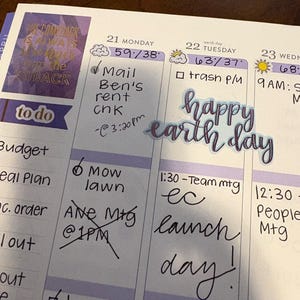 21 MONDAY
59°/38°
Mail
Ben's
rent
chk
-@ 3:20pm
Mow
lawn
ANE Mtg
@1PM
earth day
22 TUESDAY
63/37°
trash p/u
happy
earth day
1:30 - Team mtg
EC
launch
day!
23 WEDN
68°
9AM: S
12:30 -
People
Mtg
BACK
to do
Budget
eal Plan
c. order
l out
out